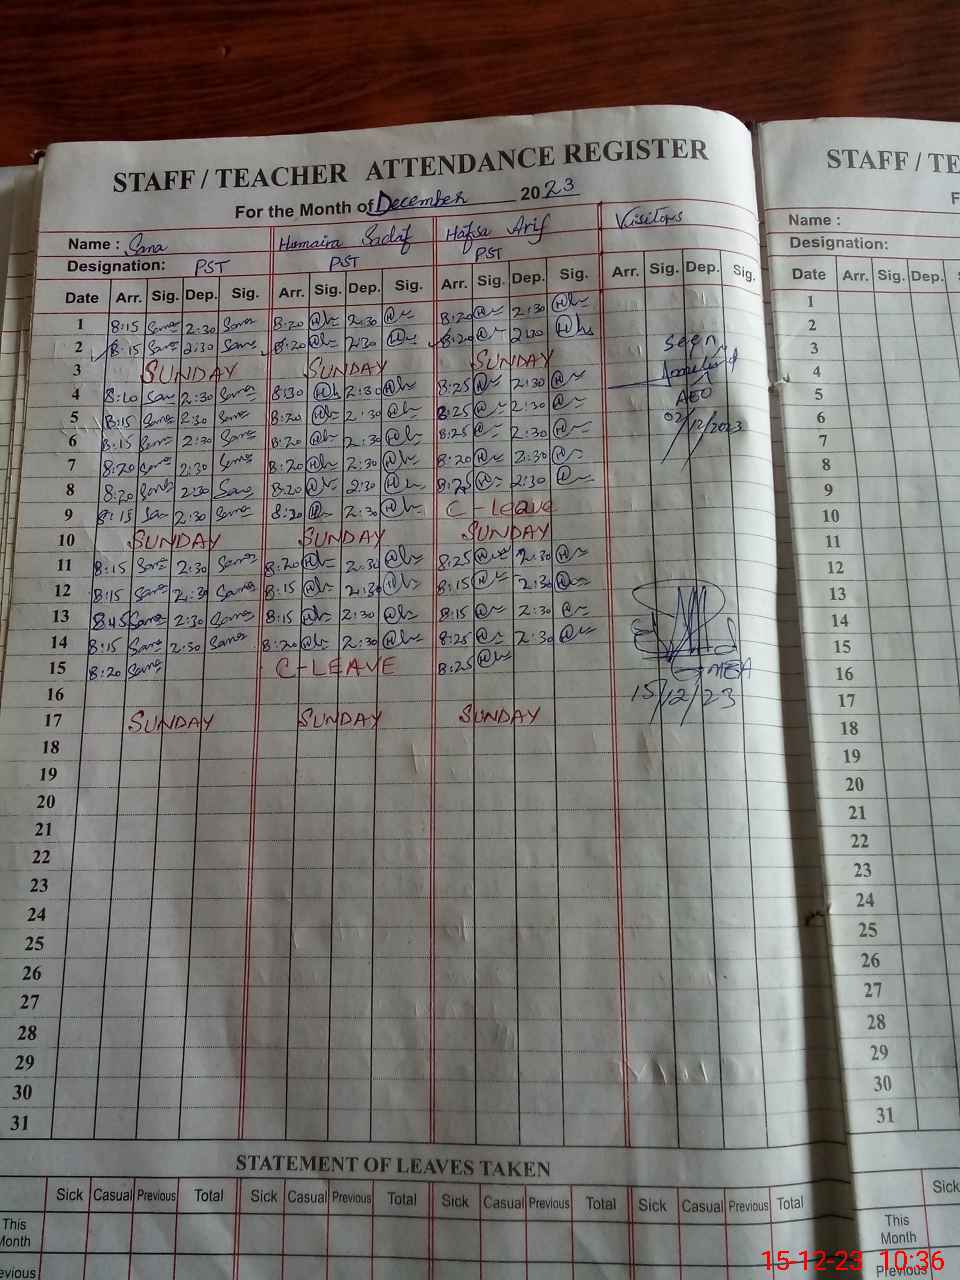 STAFF / TEACHER ATTENDANCE REGISTER
For the Month of December 2023
Name : Sana Humaira Sadaf Hafsa Arif Visitors
Designation: PST PST PST
Date Arr. Sig. Dep. Sig. Arr. Sig. Dep. Sig. Arr. Sig. Dep. Sig. Arr. Sig. Dep. Sig.
1 8:15 Sana 2:30 Sana 8:20 2:30 8:20 2:30
2 8:15 Sana 2:30 Sana 8:20 2:30 8:20 2:30 Seen
3 SUNDAY SUNDAY SUNDAY
4 Sana 2:30 Sana 8:30 2:30 8:25 2:30 AEO
5 8:15 Sana 2:30 Sana 8:20 2:30 8:25 2:30 02/12/2023
6 8:15 Sana 2:30 Sana 8:20 2:30 8:25 2:30
7 8:20 Sana 2:30 Sana 8:20 2:30 8:20 2:30
8 8:20 Sana 2:30 Sana 8:20 2:30 8:25 2:30
9 8:15 Sana 2:30 Sana 8:20 2:30 C - Leave
10 SUNDAY SUNDAY SUNDAY
11 8:15 Sana 2:30 Sana 8:20 2:30 8:25 2:30
12 8:15 Sana 2:30 Sana 8:15 2:30 8:15 2:30
13 Sana 2:30 Sana 8:15 2:30 8:15 2:30
14 8:15 Sana 2:30 Sana 8:20 2:30 8:25 2:30
15 8:20 Sana C-LEAVE 8:25 MEA
16 15/12/23
17 SUNDAY SUNDAY SUNDAY
18
19
20
21
22
23
24
25
26
27
28
29
30
31
STATEMENT OF LEAVES TAKEN
Sick Casual Previous Total Sick Casual Previous Total Sick Casual Previous Total Sick Casual Previous Total
This
Month
STAFF / TE
Name :
Designation:
Date Arr. Sig. Dep.
1
2
3
4
5
6
7
8
9
10
11
12
13
14
15
16
17
18
19
20
21
22
23
24
25
26
27
28
29
30
31
Sick
This
Month
Previous
15-12-23 10:36